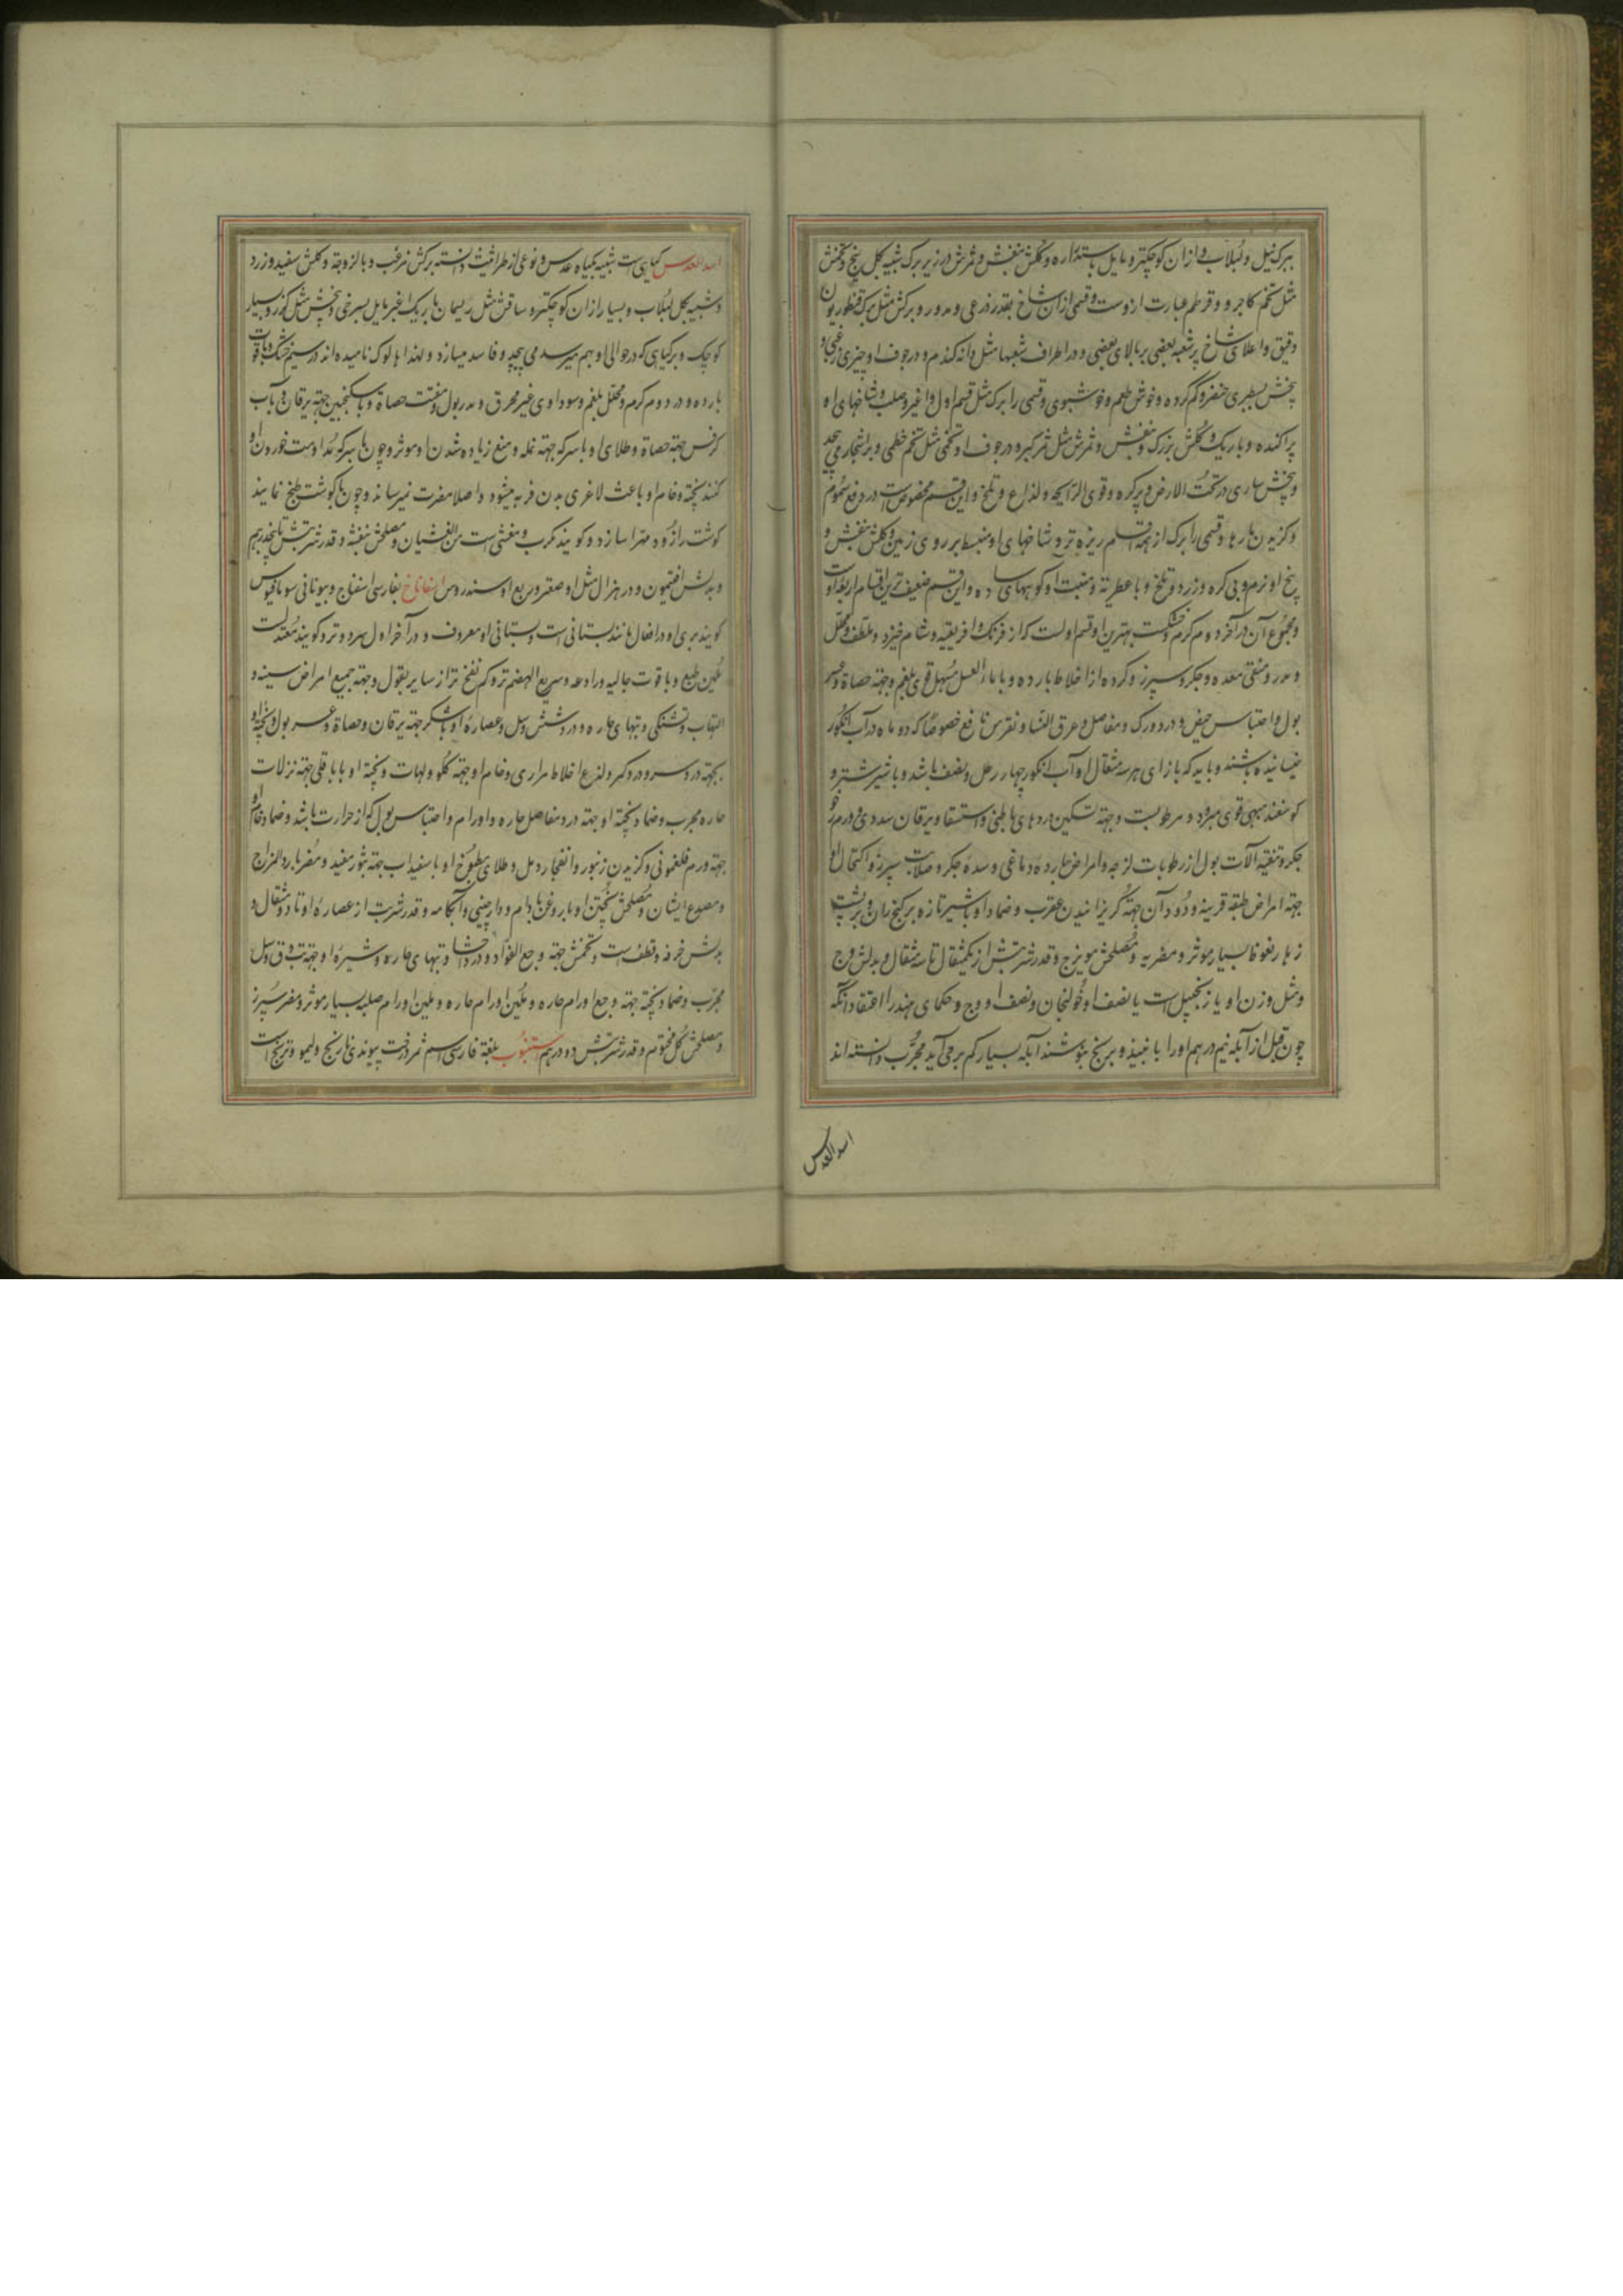 ببرک نیل و لبلاب و ازان کوچکتر و مایل باستداره و کلش بنفش و ثمرش در زیر برک شبیه بکل یخ و تخمش
مثل تخم کاجره و قرطم عبارت ازوست و قسمی ازان شاخ بقدر ذرعی و مدور و برکش مثل برک قنطوریون
دقیق و اعلای شاخ پرشعبه بعضی بر بالای بعضی و در اطراف شعبها مثل دانه کندم و در جوف او چیزی غباری و
بیخش بسطبری خنصر و کم کره و خوش طعم و خوشبوی و قسمی را برک مثل قسم اول و اغبر و صلب و شاخهای او
پراکنده و باریک و کلش بزرک و بنفش و ثمرش مثل ثمر کبر و در جوف او تخمی مثل تخم خطمی و بر اشجار می پیچد
و بیخش ساری در تحت الارض و پرکره و قوی الرایحه و لذاع و تلخ و این قسم مخصوص است در دفع سموم
و کزیدن مارها و قسمی را برک از همه اقسام ریزه تر و شاخهای او منبسط بر روی زمین و کلش بنفش و
بیخ او نرم و بی کره و زرد و تلخ و با عطریة و منبت او کوههای ساده و این قسم ضعیف ترین اقسام اربعه است
و مجموع آن در آخر دوم کرم و خشکست بهترین او قسم اولست که از فرنک و افریقیه و شام خیزد و ملطف و محلل
و مدر و منقی معده و جکر و سپرز و کرده از اخلاط بارده و با ماء العسل مسهل قوی بلغم و جهة حصاة و عسر
بول و احتباس حیض و درد ورک و مفاصل و عرق النسا و نقرس نافع خصوصا که دو ماه در آب انکور
خیسانیده باشند و باید که بازای هر سه مثقال او آب انکور چهار رطل و نصف باشد و با شیر شتر و
کوسفند مبهی قوی مبرود و مرطوبست و جهة تسکین دردهای باطنی و استسقا و یرقان سددی و ورم
جکر و تنقیه آلات بول از رطوبات لزجه و امراض بارده دماغی و سده جکر و صلابت سپرز و اکتحال او
جهة امراض طبقه قرنیه و دود آن جهة کریزانیدن عقرب و ضماد او با شیر تازه بر کنج ران و بر پشت
زهار نعوظا بسیار موثر و مضر ریه و مصلحش مویزج و قدر شربتش از یکمثقال تا سه مثقال و بدلش وج
و مثل وزن او یا زنجبیل است یا نصف او خولنجان و نصف او وج و حکمای هند را اعتقاد آنکه
چون قبل از آبله نیم درهم او را با نبیذ و برنج بنوشند آبله بسیار کم برمی آید مجرب دانسته اند
اسد العدس
اسد العدس کیاهی است شبیه بکیاه عدس و نوعی از طراثیث دانسته برکش مزغب و با لزوجة و کلش سفید و زرد
و شبیه بکل لبلاب و بسیار ازان کوچکتر و ساقش مثل ریسمان باریک اغبر مایل بسرخی و بیخش مثل کزر و بسیار
کوچک و برکیاهی که در حوالی او بهم میرسد می پیچد و فاسد میسازد و لهذا هالوک نامیده اند در سیم خشک و با قوت
بارده و در دوم کرم و محلل بلغم و سوداوی غیر محرق و مدر بول و مفتت حصاة و با سکنجبین جهة یرقان و با آب
کرفس جهة حصاة و طلای او با سرکه جهة نمله و منع زیاده شدن او موثر و چون با سرکه مداومت خوردن او
کنند پخته و خام او باعث لاغری بدن فربه میشود و اصلا مضرت نمیرساند و چون با کوشت طبخ نمایند
کوشت را زود مهرا سازد و کویند مکرب و مغثی است من الغثیان و مصلحش بنفشه و قدر شربتش تا پنجدرهم
و بدلش افتیمون و در هزال مثل او صعتر و ربع او سندروس اسفاناخ بفارسی اسفناج و بیونانی سوماقیوس
کویند بری او در افعال مانند بستانی است و بستانی او معروف و در آخر اول سرد و تر و کویند معتدلست
ملین طبع و با قوت جالیه و رادعه و سریع الهضم تر و کم نفخ تر از سایر بقول و جهة جمیع امراض سینه و
التهاب و تشنکی و تبهای حاره و درد شش و سل و عصاره او با شکر جهة یرقان و حصاة و عسر بول و پخته او
بجهة درد سر و درد کمر و لذع اخلاط مراری و خام او جهة کلو و لهات و پخته او با باقلی جهة نزلات
حاره مجرب و ضماد پخته او جهة درد مفاصل حاره و اورام و احتباس بول که از حرارت باشد و ضماد خام او
جهة ورم فلغمونی و کزیدن زنبور و انفجار دمل و طلای مطبوخ او با سفیداب جهة بثور مفید و مضر بارد المزاج
و مصدع ایشان و مصلحش پختن او با روغن بادام و دارچینی و آبکامه و قدر شربت از عصاره او تا ده مثقال و
بدلش خرفه و قطف است و تخمش جهة وجع الفواد و درد احشا و تبهای حاره و شیره او جهة تب دق و سل
مجرب و ضماد پخته جهة وجع اورام حاره و ملین اورام حاره و ملین اورام صلبه بسیار موثر و مضر سپرز
و مصلحش کل مختوم و قدر شربتش دو درهم استنبوب بلغة فارسی اسم ثمر درخت پیوندی نارنج و لیمو و ترنج است